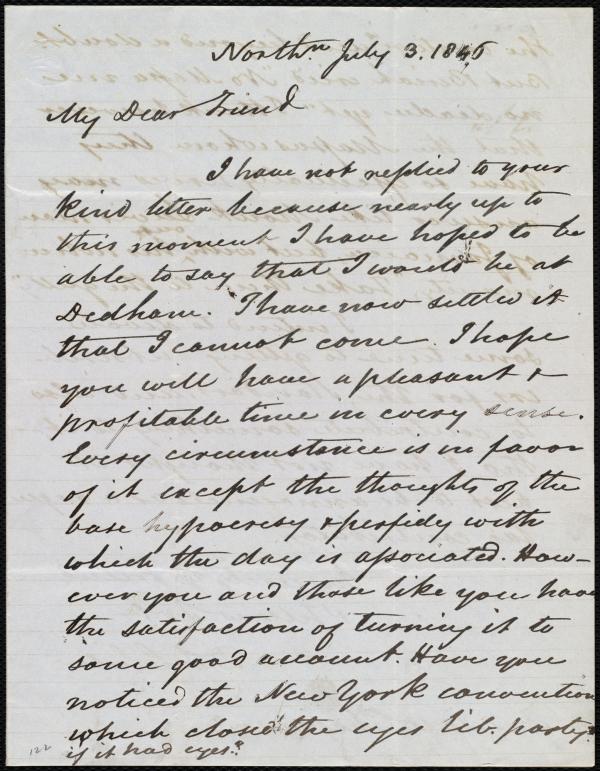 North.n July 3. 1846
My Dear Friend
I have not replied to your
kind letter because nearly up to
this moment I have hoped to be
able to say that I would be at
Dedham. I have now settled it
that I cannot come. I hope
you will have a pleasant &
profitable time in every sense.
Every circumstance is in favor
of it except the thoughts of the
base hypocresy & perfidy with
which the day is associated. How-
ever you and those like you have
the satisfaction of turning it to
some good account. Have you
noticed the New York convention
which closed the eyes lib. party*
if it had eyes.*
122